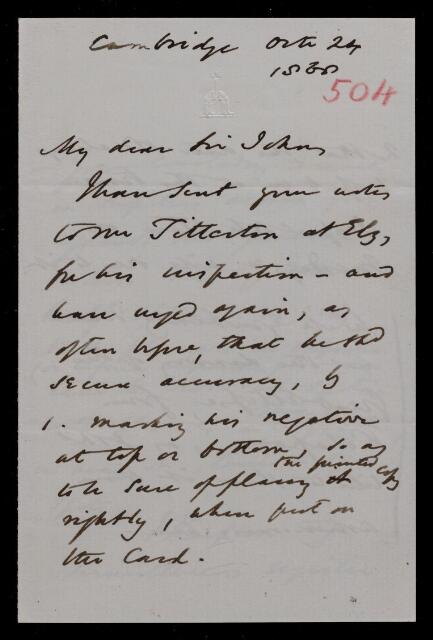 Cambridge Octr 24
1868
504
My dear Sir John,
I have sent your notes
to Mr Titterton at Ely,
for his inspection - and
have urged again, as
often before, that he shd
secure accuracy, by
1. marking his negative
at top or bottom, so as
to be sure of placing the printed copy
rightly, when put on
the Card.